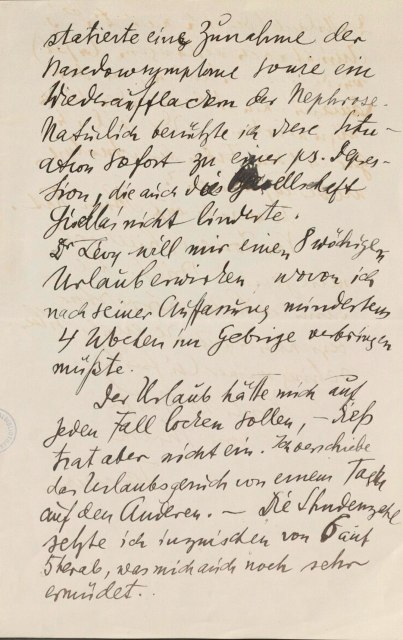 statierte eine Zunahme der
Basedowsymptome sowie ein
Wiederaufflackern der Nephrose.
Natürlich benützte ich diese Situ-
ation sofort zu einer ps. Depres-
sion, die auch die Gesellschaft
Gisella's nicht linderte.
Dr Levy will mir einen 8 wöchigen
Urlaub erwirken, wovon ich
nach seiner Auffassung mindestens
4 Wochen im Gebirge verbringen
müßte.
Der Urlaub hätte mich auf
jeden Fall locken sollen, – dies
trat aber nicht ein. Ich verschiebe
das Urlaubsgesuch von einem Tag
auf den Anderen. – Die Stundenzahl
setzte ich inzwischen von 6 auf
5 herab, was mich auch noch sehr
ermüdet.